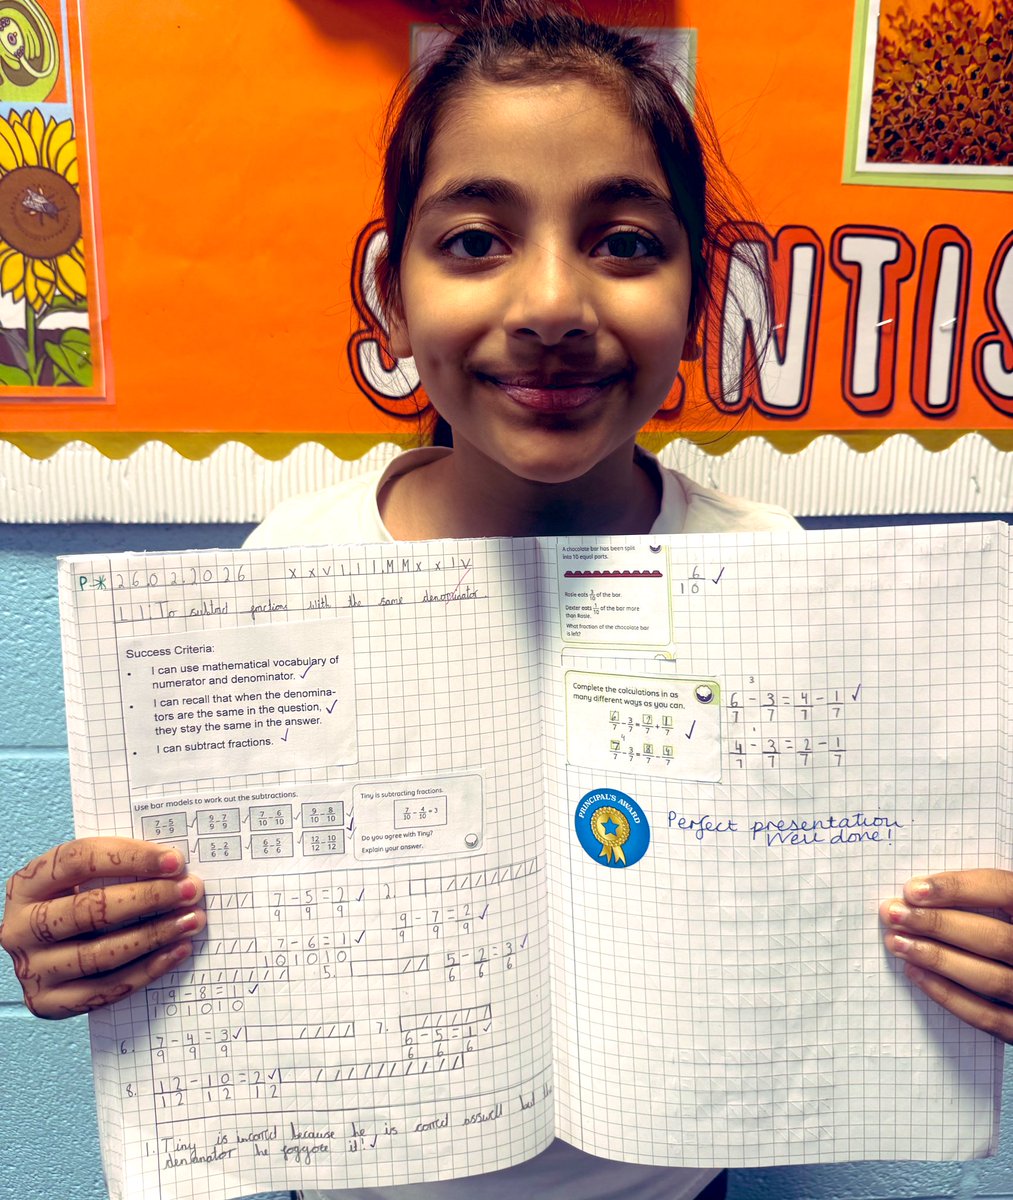 SCIENTIS
P 26.02.2026 xxvI.II.MMxxIV
LI: To subtract fractions with the same denominator.
Success Criteria:
• I can use mathematical vocabulary of
numerator and denominator. ✓
• I can recall that when the denomina-
tors are the same in the question, ✓
they stay the same in the answer.
• I can subtract fractions. ✓
Use bar models to work out the subtractions.
7/9 - 5/9 9/9 - 7/9 7/10 - 6/10 9/10 - 8/10
5/6 - 2/6 6/6 - 5/6 12/12 - 10/12
Tiny is subtracting fractions.
7/10 - 4/10 = 3
Do you agree with Tiny?
Explain your answer.
7/9 - 5/9 = 2/9 ✓
2. 9/9 - 7/9 = 2/9 ✓
7/10 - 6/10 = 1/10 ✓
9/10 - 8/10 = 1/10 ✓
5. 5/6 - 2/6 = 3/6 ✓
6. 7/9 - 4/9 = 3/9 ✓
7. 6/6 - 5/6 = 1/6 ✓
8. 12/12 - 10/12 = 2/12 ✓
1. Tiny is incorrect because he is correct asswell but the
denanator he foggote it! ✓
A chocolate bar has been split
into 10 equal parts.
Rosie eats 3/10 of the bar.
Dexter eats 1/10 of the bar more
than Rosie.
What fraction of the chocolate bar
is left?
6/10 ✓
Complete the calculations in as
many different ways as you can.
6/7 - 3/7 = 2/7 + 1/7
7/7 - 3/7 = 8/7 - 4/7
✓
6/7 - 3/7 = 4/7 - 1/7 ✓
4/7 - 3/7 = 2/7 - 1/7
PRINCIPAL'S AWARD
Perfect presentation.
Well done!